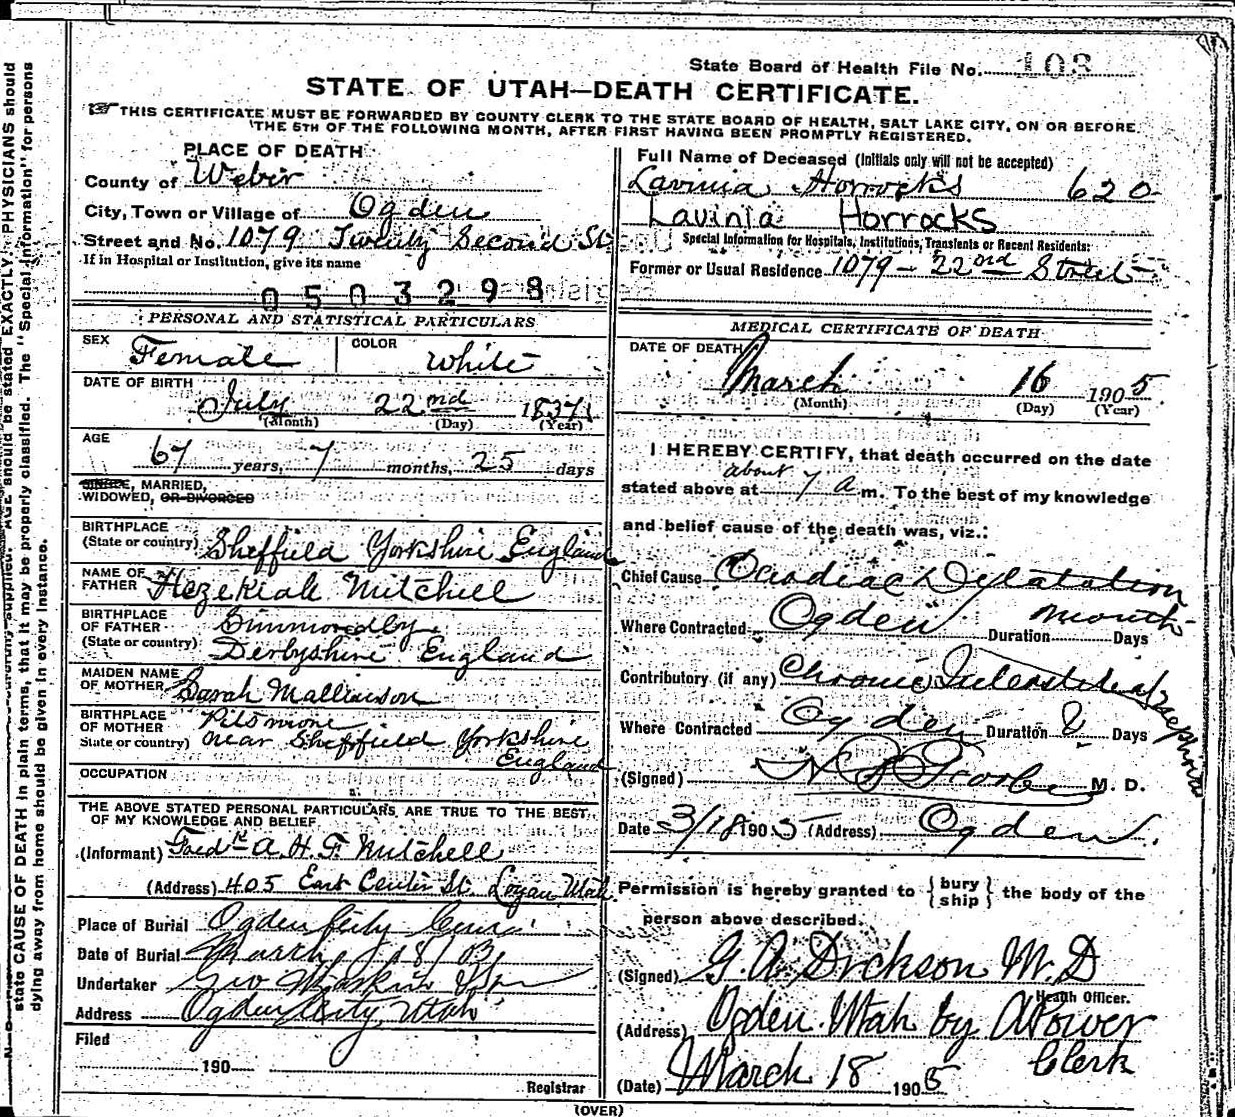 State Board of Health File No. 103
STATE OF UTAH—DEATH CERTIFICATE.
THIS CERTIFICATE MUST BE FORWARDED BY COUNTY CLERK TO THE STATE BOARD OF HEALTH, SALT LAKE CITY, ON OR BEFORE
THE 5TH OF THE FOLLOWING MONTH, AFTER FIRST HAVING BEEN PROMPTLY REGISTERED.
PLACE OF DEATH
County of Weber
City, Town or Village of Ogden
Street and No. 1079 Twenty Second St
If in Hospital or Institution, give its name
0503298
PERSONAL AND STATISTICAL PARTICULARS
SEX Female COLOR White
DATE OF BIRTH July 22nd 1837
(Month) (Day) (Year)
AGE 67 years, 7 months, 25 days
SINGLE, MARRIED,
WIDOWED, OR DIVORCED
BIRTHPLACE
(State or country) Sheffield Yorkshire England
NAME OF
FATHER Hezekiah Mitchell
BIRTHPLACE
OF FATHER
(State or country) Derbyshire England
MAIDEN NAME
OF MOTHER Sarah Mallinson
BIRTHPLACE
OF MOTHER
State or country) near Sheffield Yorkshire
England
OCCUPATION
THE ABOVE STATED PERSONAL PARTICULARS ARE TRUE TO THE BEST
OF MY KNOWLEDGE AND BELIEF
(Informant) Fredk A. H. F. Mitchell
(Address) 405 East Center St. Logan Utah
Place of Burial Ogden City
Date of Burial March 18
Undertaker
Address Ogden City, Utah
Filed
190
Registrar
Full Name of Deceased (Initials only will not be accepted)
Lavinia Horrocks 620
Lavinia Horrocks
Special Information for Hospitals, Institutions, Transients or Recent Residents:
Former or Usual Residence 1079 - 22nd Street
MEDICAL CERTIFICATE OF DEATH
DATE OF DEATH
March 16 1905
(Month) (Day) (Year)
I HEREBY CERTIFY, that death occurred on the date
about
stated above at 7 a m. To the best of my knowledge
and belief cause of the death was, viz.:
Chief Cause Cardiac Dylatation
Where Contracted Ogden Duration month Days
Contributory (if any) Chronic Interstitial Nephritis
Where Contracted Ogden Duration Days
(Signed) M. D.
Date 3/18 1905 (Address) Ogden.
Permission is hereby granted to { bury ship } the body of the
person above described.
(Signed) G. A. Dickson M.D
Health Officer.
(Address) Ogden Utah by A Power
Clerk
(Date) March 18 1905
(OVER)
state CAUSE OF DEATH in plain terms, that it may be properly classified. The "Special Information" for persons
dying away from home should be given in every instance.
AGE should be stated EXACTLY. PHYSICIANS should